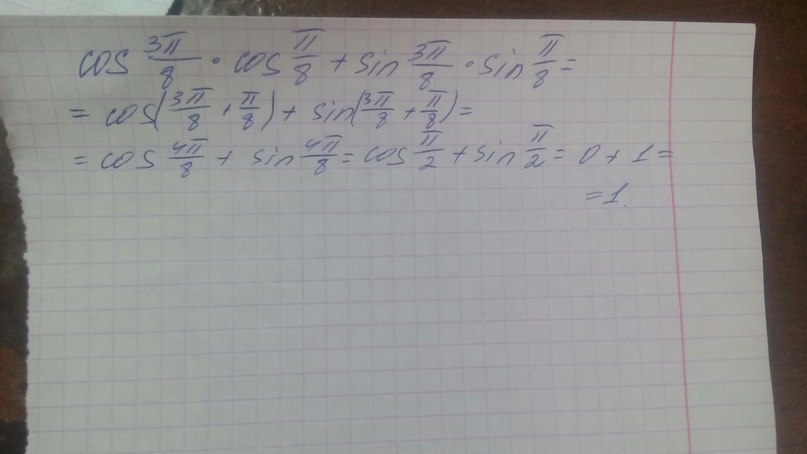 cos 3π/8 · cos π/8 + sin 3π/8 · sin π/8 =
= cos(3π/8 + π/8) + sin(3π/8 + π/8) =
= cos 4π/8 + sin 4π/8 = cos π/2 + sin π/2 = 0 + 1 =
= 1.